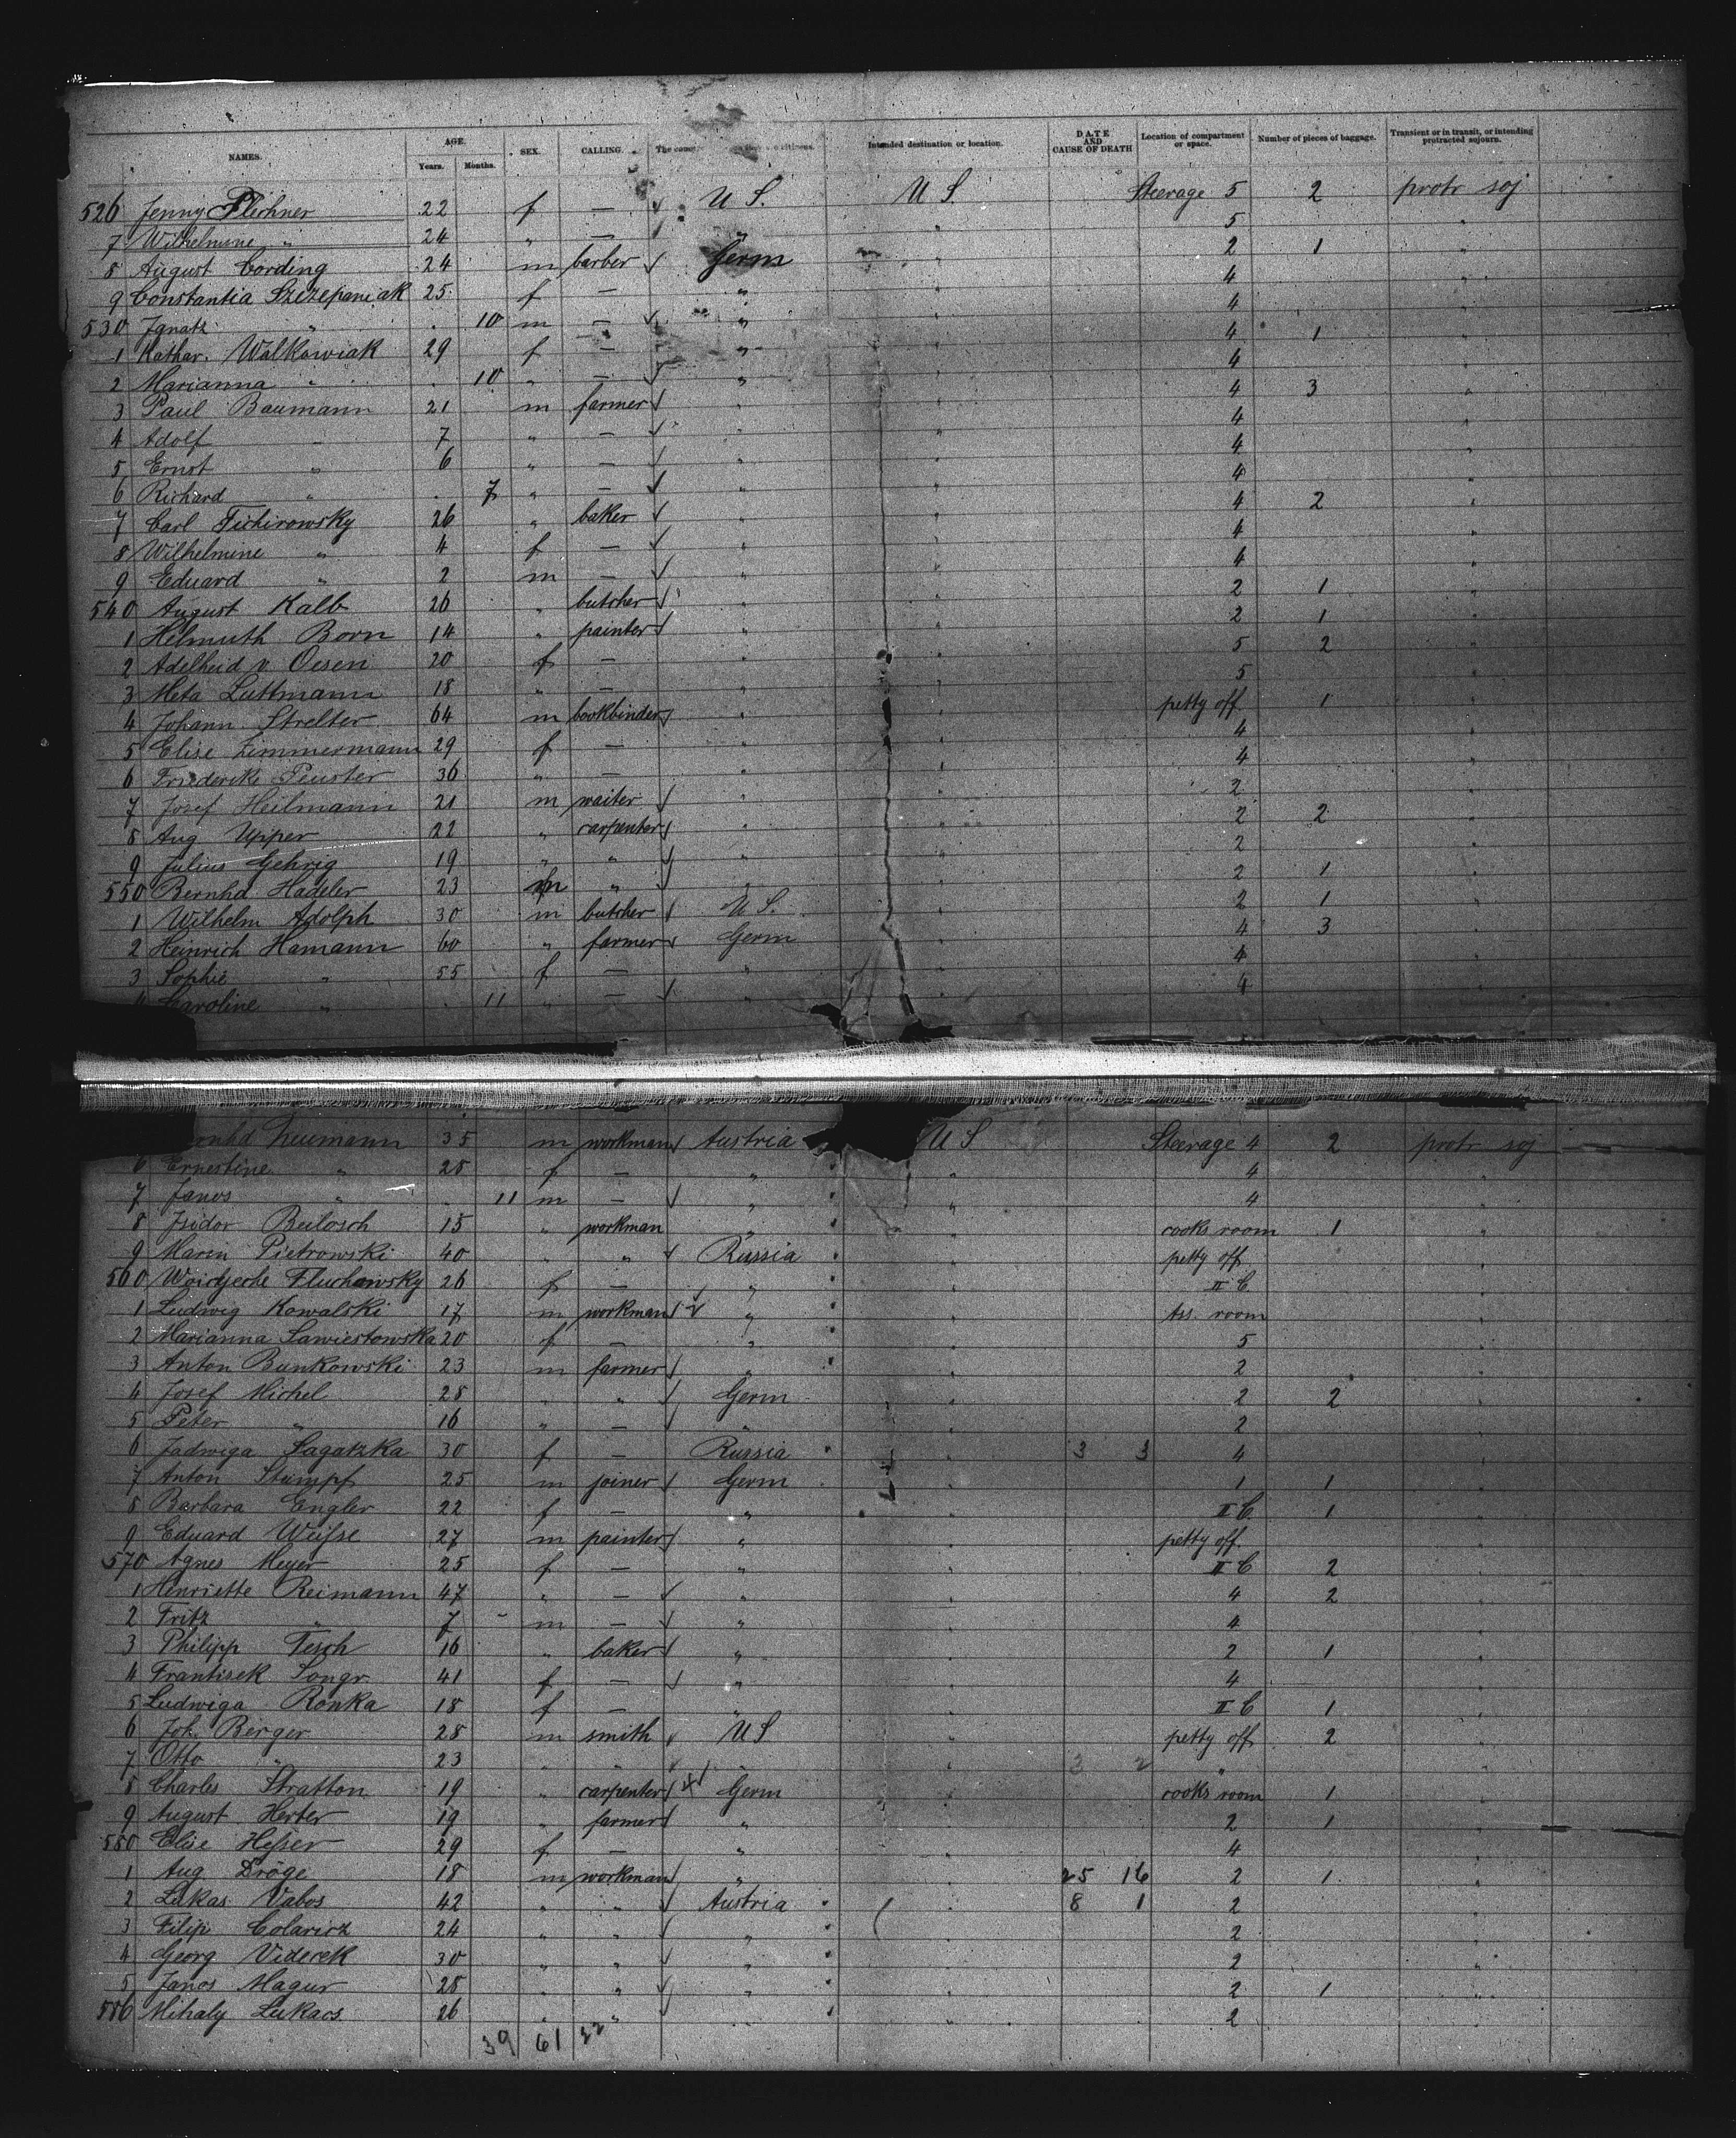 NAMES. AGE. Years. Months. SEX. CALLING. Intended destination or location. DATE AND CAUSE OF DEATH Location of compartment or space. Number of pieces of baggage. Transient or in transit, or intending protracted sojourn.
526 Jenny Plechner 22 f — U S. U S. Steerage 5 2 protr soj
7 Wilhelmine " 24 " — " " 5 "
8 August Cording 24 m barber Germ " 2 1 "
9 Constantia Szczepaniak 25 f — " " 4 "
530 Ignatz " 10 m — " " 4 "
1 Kathar. Walkowiak 29 f — " " 4 1 "
2 Marianna " 10 " — " " 4 "
3 Paul Baumann 21 m farmer " " 4 3 "
4 Adolf " 7 " — " " 4 "
5 Ernst " 6 " — " " 4 "
6 Richard " 7 " — " " 4 "
7 Carl Tichirowsky 26 " baker " " 4 2 "
8 Wilhelmine " 4 f — " " 4 "
9 Eduard " 2 m — " " 4 "
540 August Kalb 26 " butcher " " 2 1 "
1 Helmuth Born 14 " painter " " 2 1 "
2 Adelheid v Oesen 20 f — " " 5 2 "
3 Meta Luttmann 18 " — " " 5 "
4 Johann Strelter 64 m bookbinder " " petty off 1 "
5 Elise Zimmermann 29 f — " " 4 "
6 Friedericke Peuster 36 " — " " 4 "
7 Josef Heilmann 21 m waiter " " 2 "
8 Aug Upper 22 " carpenter " " 2 2 "
9 Julius Gehrig 19 " " " " 2 "
550 Bernhd Hadeler 23 m " " " 2 1 "
1 Wilhelm Adolph 30 m butcher U S. " 2 1 "
2 Heinrich Hamann 60 " farmer Germ " 4 3 "
3 Sophie " 55 f — " " 4 "
4 Caroline " 11 " — " " 4 "
Neumann 35 m workman Austria U S Steerage 4 2 protr soj
6 Ernestine " 28 f — " " 4 "
7 Janos " 11 m — " " 4 "
8 Isidor Beilosch 15 " workman " " cooks room 1 "
9 Marin Pietrowski 40 " " Russia " petty off "
560 Woidjeche Fluchowsky 26 f — " " II C "
1 Ludwig Kowalski 17 m workman " " Ass. room "
2 Marianna Sawiestowska 20 f — " " 5 "
3 Anton Bunkowski 23 m farmer " " 2 "
4 Josef Michel 28 " " Germ " 2 2 "
5 Peter " 16 " — " " 2 "
6 Jadwiga Sagatzka 30 f — Russia " 3 3 4 "
7 Anton Stumpf 25 m joiner Germ " 1 1 "
8 Barbara Engler 22 f — " " II C 1 "
9 Eduard Weisse 27 m painter " " petty off. "
570 Agnes Meyer 25 f — " " II C 2 "
1 Henriette Reimann 47 " — " " 4 2 "
2 Fritz " 7 m — " " 4 "
3 Philipp Tesch 16 " baker " " 2 1 "
4 Frantisek Songr 41 f — " " 4 "
5 Ludwiga Ronka 18 f — " " II C 1 "
6 Joh. Berger 28 m smith U S " petty off 2 "
7 Otto " 23 " " " " 3 2 " "
8 Charles Stratton 19 " carpenter Germ " cooks room 1 "
9 August Herter 19 " farmer " " 2 1 "
580 Elise Hesser 29 f — " " 4 "
1 Aug Dröge 18 m workman " " 25 16 2 1 "
2 Lukas Vabos 42 " " Austria " 8 1 2 "
3 Filip Colaricz 24 " " " " 2 "
4 Georg Viderek 30 " " " " 2 "
5 Janos Magur 28 " " " " 2 1 "
586 Mihaly Lukacs 26 " " " " 2 "
39 61 32